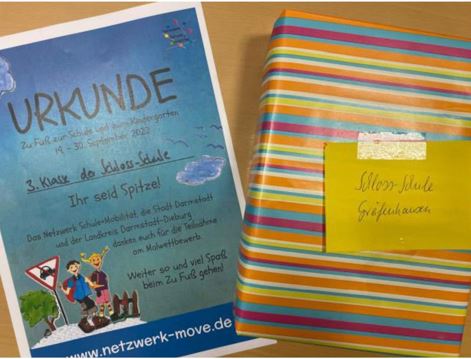 URKUNDE
Zu Fuß zur Schule und zum Kindergarten
19. - 30. September 2022
3. Klasse der Schloss-Schule
Ihr seid Spitze!
Das Netzwerk Schule+Mobilität, die Stadt Darmstadt
und der Landkreis Darmstadt-Dieburg
danken euch für die Teilnahme
am Malwettbewerb.
Weiter so und viel Spaß
beim Zu Fuß gehen!
www.netzwerk-move.de
Schloss-Schule
Gräfenhausen